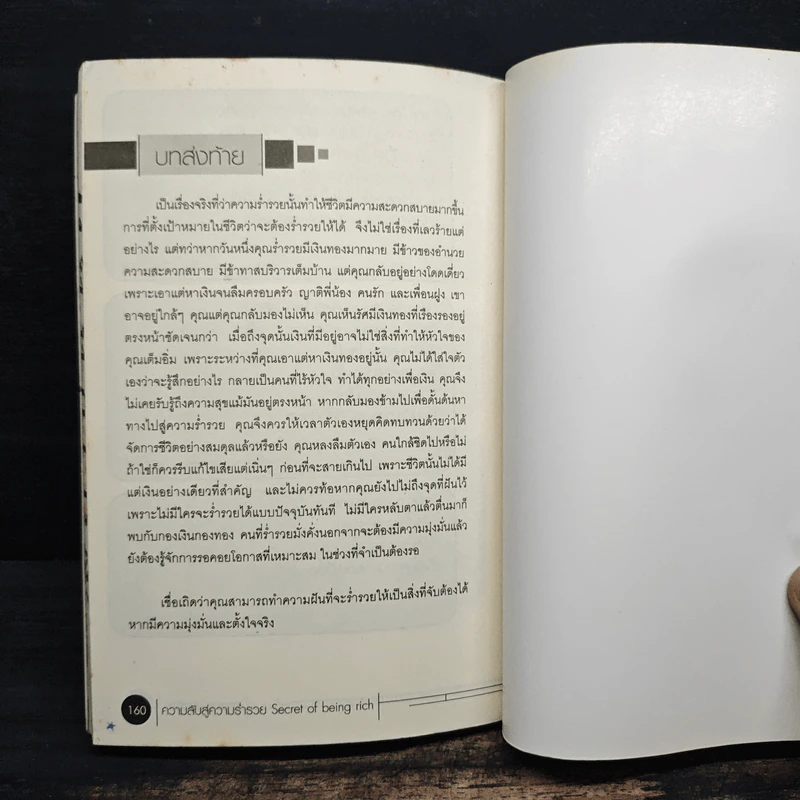 บทส่งท้าย
เป็นเรื่องจริงที่ว่าความร่ำรวยนั้นทำให้ชีวิตมีความสะดวกสบายมากขึ้น
การที่ตั้งเป้าหมายในชีวิตว่าจะต้องร่ำรวยให้ได้ จึงไม่ใช่เรื่องที่เลวร้ายแต่
อย่างไร แต่ทว่าหากวันหนึ่งคุณร่ำรวยมีเงินทองมากมาย มีข้าวของอำนวย
ความสะดวกสบาย มีข้าทาสบริวารเต็มบ้าน แต่คุณกลับอยู่อย่างโดดเดี่ยว
เพราะเอาแต่หาเงินจนลืมครอบครัว ญาติพี่น้อง คนรัก และเพื่อนฝูง เขา
อาจอยู่ใกล้ๆ คุณแต่คุณกลับมองไม่เห็น คุณเห็นรัศมีเงินทองที่เรืองรองอยู่
ตรงหน้าชัดเจนกว่า เมื่อถึงจุดนั้นเงินที่มีอยู่อาจไม่ใช่สิ่งที่ทำให้หัวใจของ
คุณเต็มอิ่ม เพราะระหว่างที่คุณเอาแต่หาเงินทองอยู่นั้น คุณไม่ได้ใส่ใจตัว
เองว่าจะรู้สึกอย่างไร กลายเป็นคนที่ไร้หัวใจ ทำได้ทุกอย่างเพื่อเงิน คุณจึง
ไม่เคยรับรู้ถึงความสุขแม้มันอยู่ตรงหน้า หากกลับมองข้ามไปเพื่อดั้นด้นหา
ทางไปสู่ความร่ำรวย คุณจึงควรให้เวลาตัวเองหยุดคิดทบทวนด้วยว่าได้
จัดการชีวิตอย่างสมดุลแล้วหรือยัง คุณหลงลืมตัวเอง คนใกล้ชิดไปหรือไม่
ถ้าใช่ก็ควรรีบแก้ไขเสียแต่เนิ่นๆ ก่อนที่จะสายเกินไป เพราะชีวิตนั้นไม่ได้มี
แต่เงินอย่างเดียวที่สำคัญ และไม่ควรท้อหากคุณยังไปไม่ถึงจุดที่ฝันไว้
เพราะไม่มีใครจะร่ำรวยได้แบบปัจจุบันทันที ไม่มีใครหลับตาแล้วตื่นมาก็
พบกับกองเงินกองทอง คนที่ร่ำรวยมั่งคั่งนอกจากจะต้องมีความมุ่งมั่นแล้ว
ยังต้องรู้จักการรอคอยโอกาสที่เหมาะสม ในช่วงที่จำเป็นต้องรอ
เชื่อเถิดว่าคุณสามารถทำความฝันที่จะร่ำรวยให้เป็นสิ่งที่จับต้องได้
หากมีความมุ่งมั่นและตั้งใจจริง
160 ความลับสู่ความร่ำรวย Secret of being rich